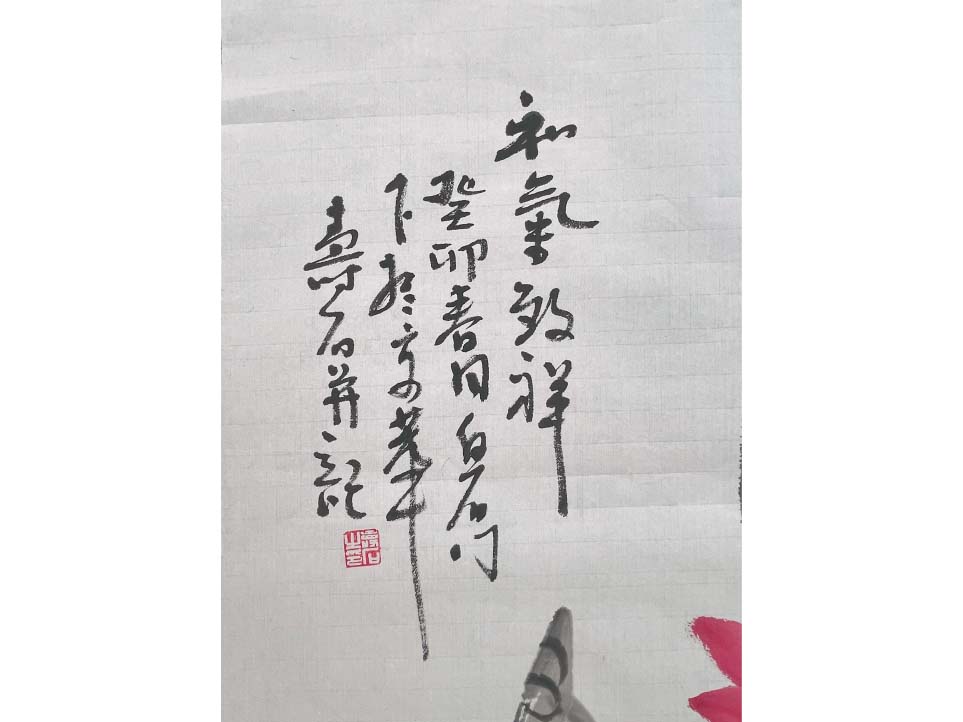 和氣致祥
癸卯春日白石門
下於京華
壽石并記
壽石之印